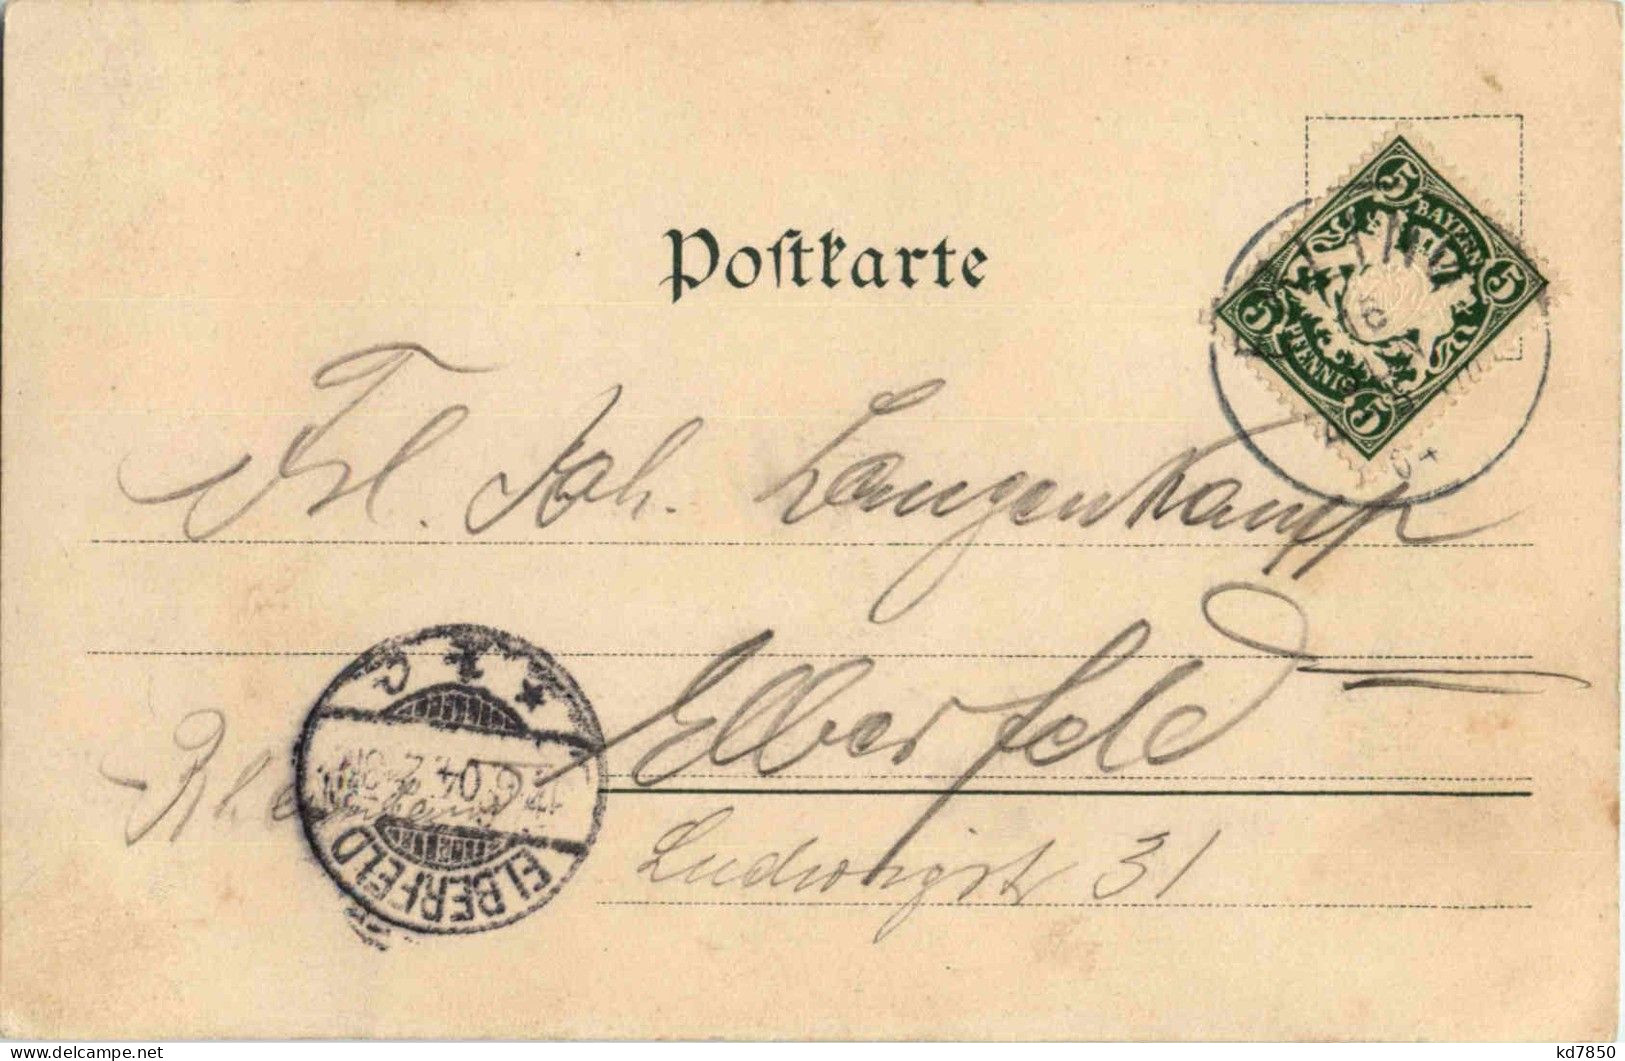 Postkarte
5 BAYERN 5
5 PFENNIG 5
04
Frl. Joh. Langenkamp
Elberfeld
Rheinland
Ludwigstr 31
ELBERFELD
* 1 * c
17.6.04.
kd7850